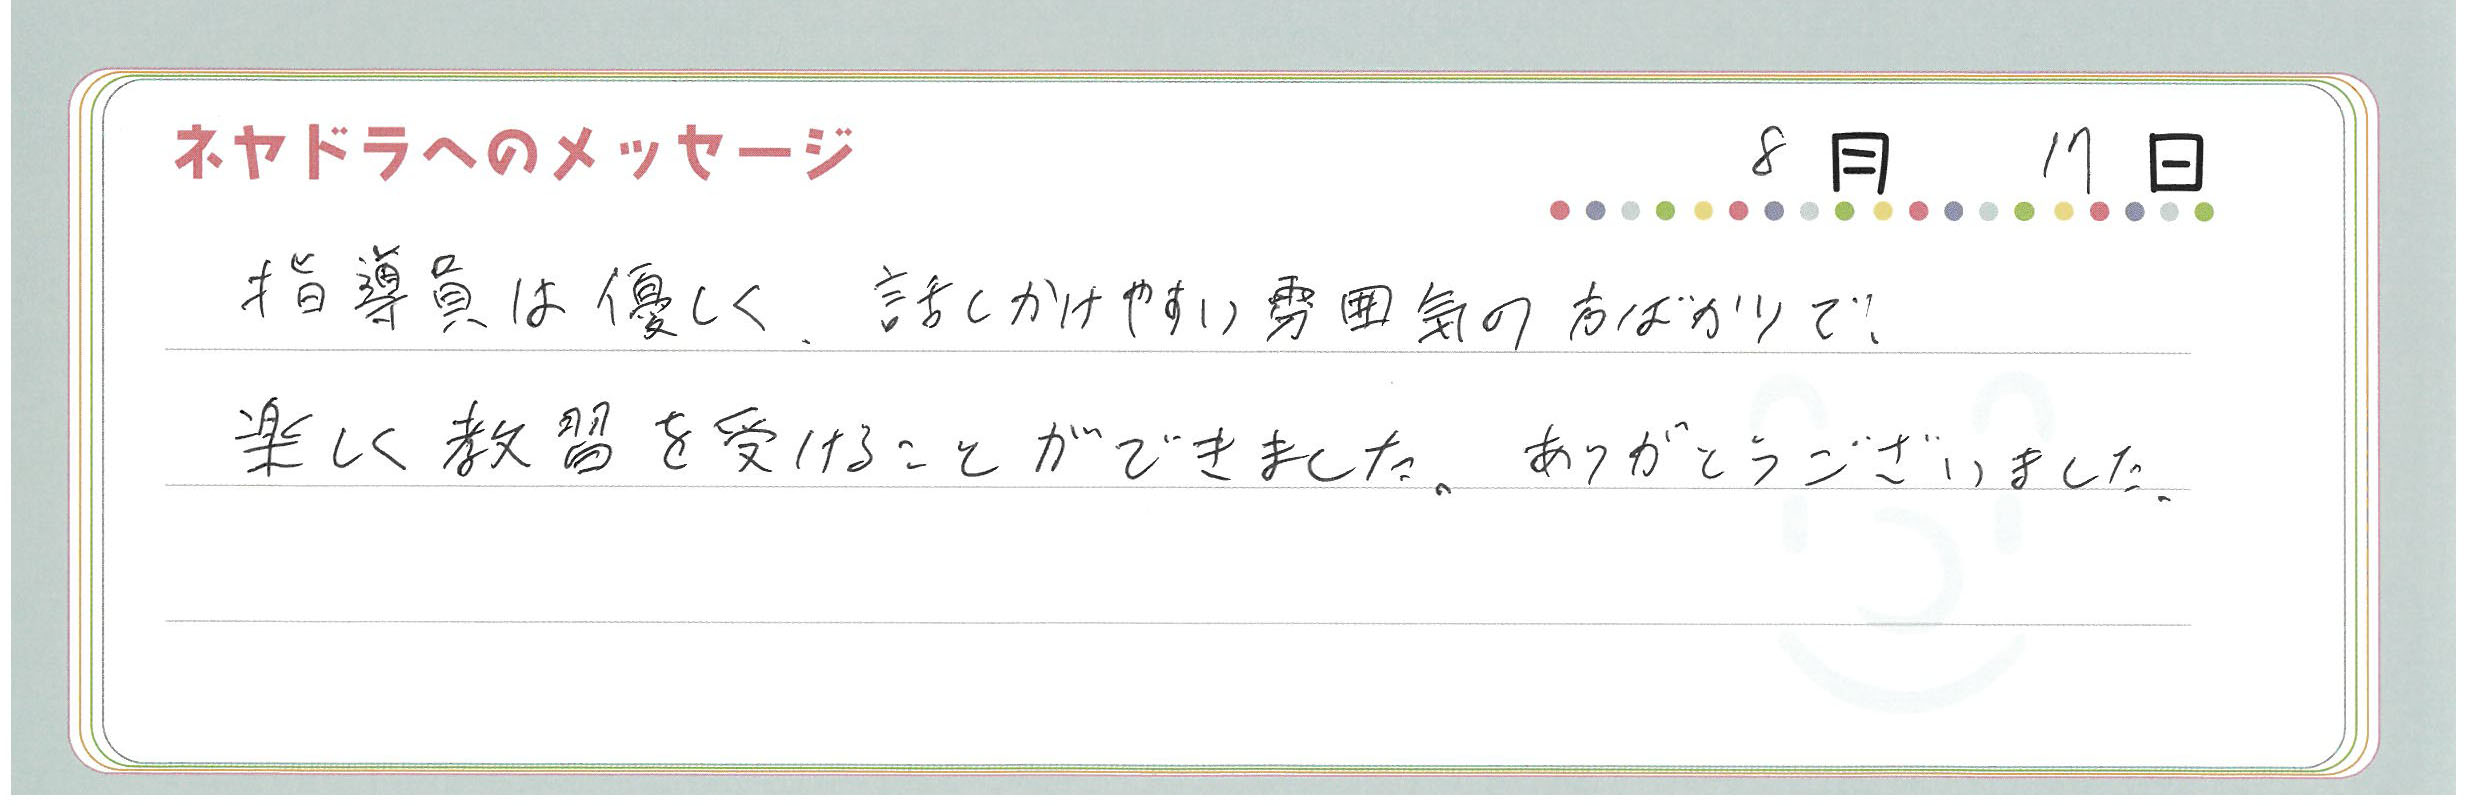 ネヤドラへのメッセージ 8月 17日
指導員は優しく、話しかけやすい雰囲気の方ばかりで、
楽しく教習を受けることができました。ありがとうございました。